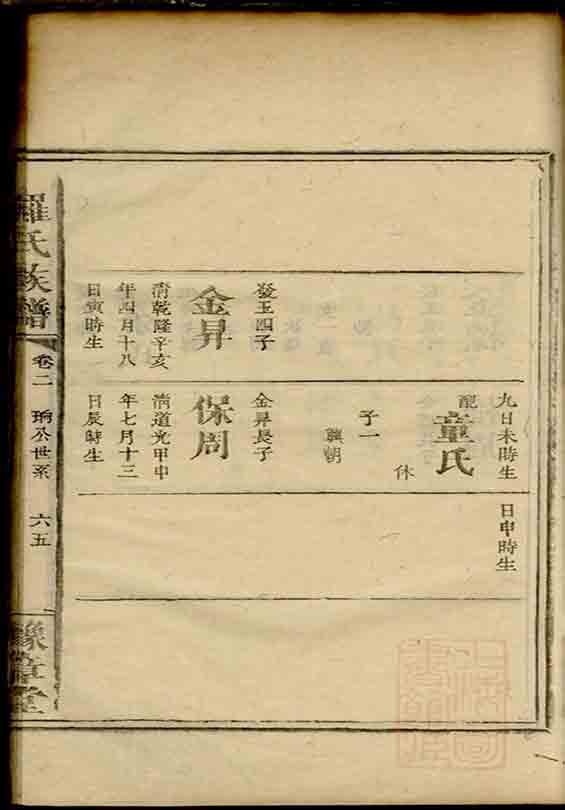 發玉四子
金昇
清乾隆辛亥
年四月十八
日寅時生
九日未時生
配
童氏
休
子一
興朝
金昇長子
保周
清道光甲申
年七月十三
日辰時生
日申時生
羅氏族譜
卷二
珦公世系
六五
豫章堂